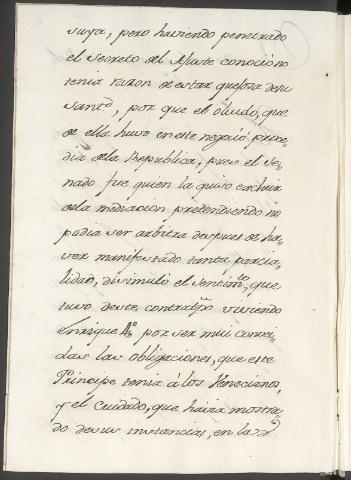 suya, pero haviendo penetrado
el secreto del Ajuste conoció no
tenia razon de estar quejosa de su
Santd, por que el olvido, que
de ella huvo en este negoció proce„
dia de la Republica, pues el Se„
nado fue quien la quiso excluir
de la mediacion pretendiendo no
podia ser arbitra despues de ha„
ver manifestado tanta parcia„
lidad, disimuló el sentimto, que
tuvo de este contratpo viviendo
Enrique 4o por ser mui conoci„
das las obligaciones, que este
Principe tenia à los Venecianos,
y el cuidado, que havia mostra„
do de sus instancias, en la